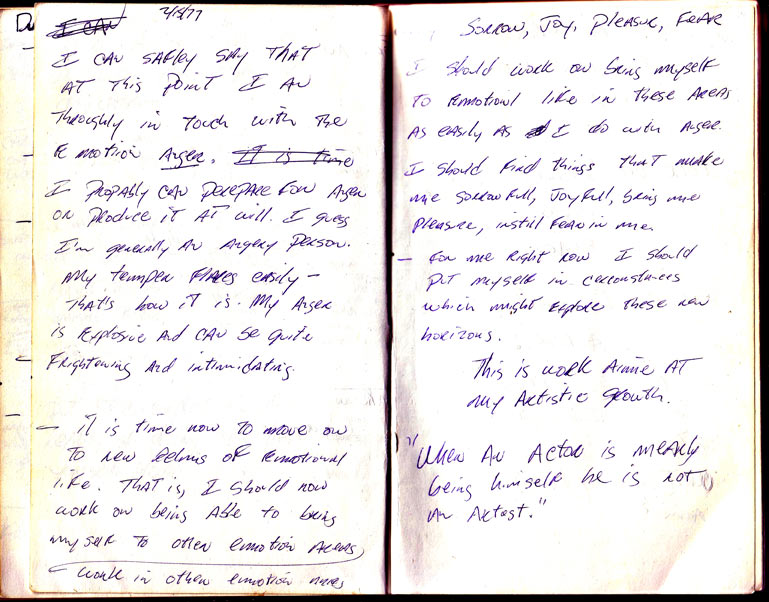 Du
I CAN
2/15/77
I CAN SAFLEY SAY THAT
AT THIS POINT I AM
Throughly in Touch with The
Emotion Anger. It is time
I propably CAN perepare FOR Anger
OR produce iT AT will. I guess
I'm generally AN Angery person.
My temper FLARES easily –
THAT'S how iT is. My Anger
is Explosive And CAN be quite
Frightening And intimidating.
– iT is time now To move on
To new Relms OF Emotional
life. THAT is, I should now
work on being Able to bring
myself To other emotion Areas,
work in other emotion areas
Sorrow, Joy, Pleasure, Fear
I should work on bring myself
To Emotionl life in These Areas
As easily As I do with Anger.
I should Find things THAT make
me sorrowfull, Joyfull, bring me
pleasure, instill Fear in me.
– For me Right now I should
put myself in circumstances
which might Explore These new
horizons.
This is work Aime AT
my Artistic Growth.
"When AN Actor is mearly
being himself he is not
AN Artist."